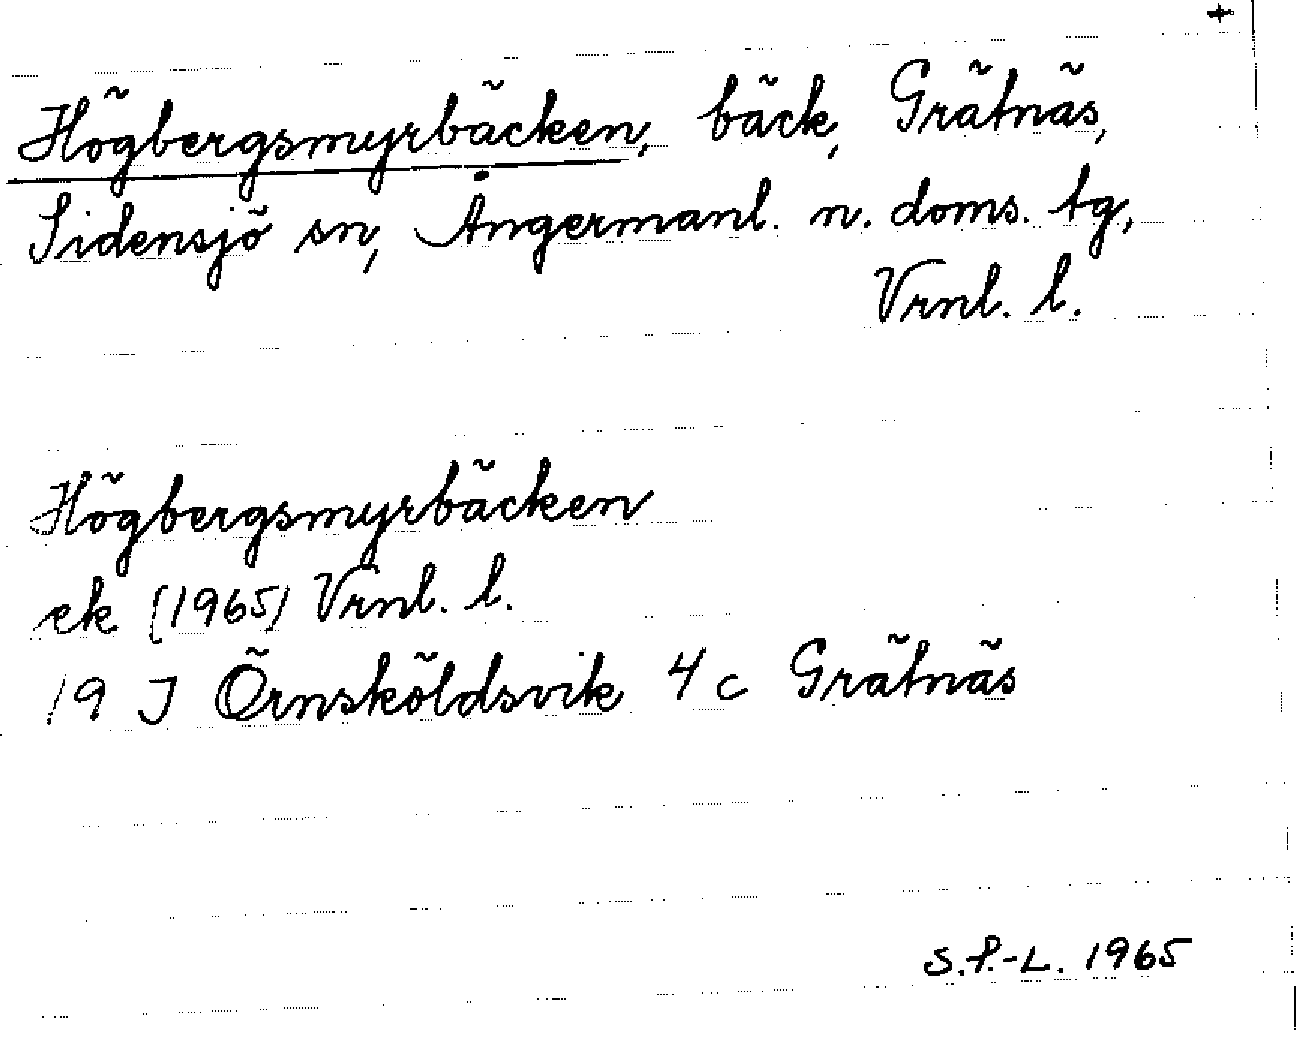 +
Högbergsmyrbäcken, bäck, Grätnäs,
Sidensjö sn, Ångermanl. n. doms. tg,
Vrnl. l.
Högbergsmyrbäcken
ek (1965) Vrnl. l.
19 J Örnsköldsvik 4 c Grätnäs
S.P.-L. 1965